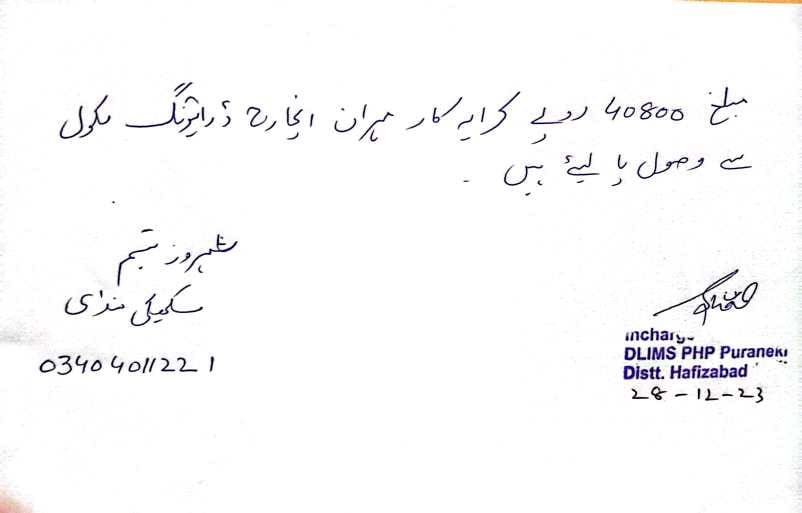 مبلغ 40800 روپے کرایہ کار مہران انچارج ڈرائیونگ سکول
سے وصول پا لیئے ہیں ۔
شہروز تبسم
سکھیکی منڈی
03404011221
Incharge
DLIMS PHP Puraneki
Distt. Hafizabad
28-12-23